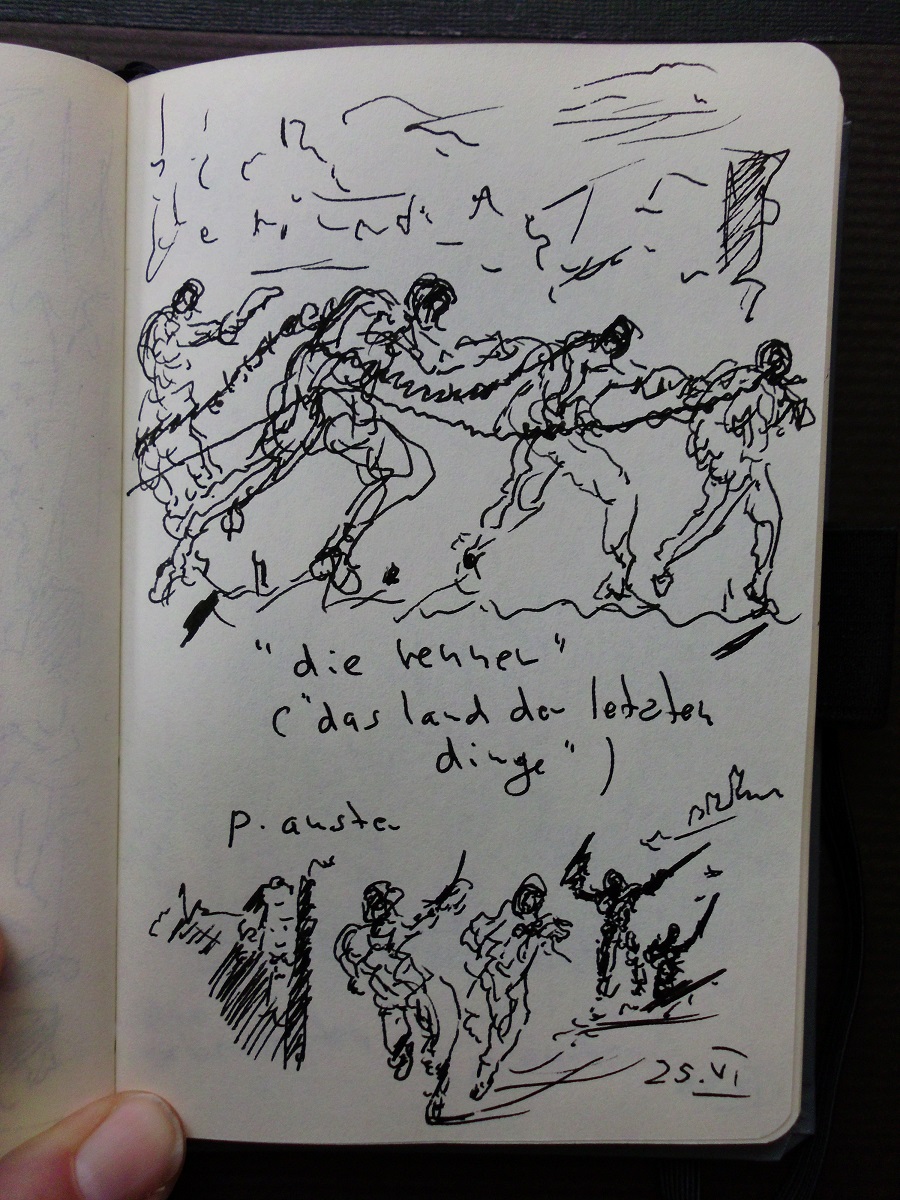 "die rennen"
("das land der letzten
dinge")
p. auster
25.VI